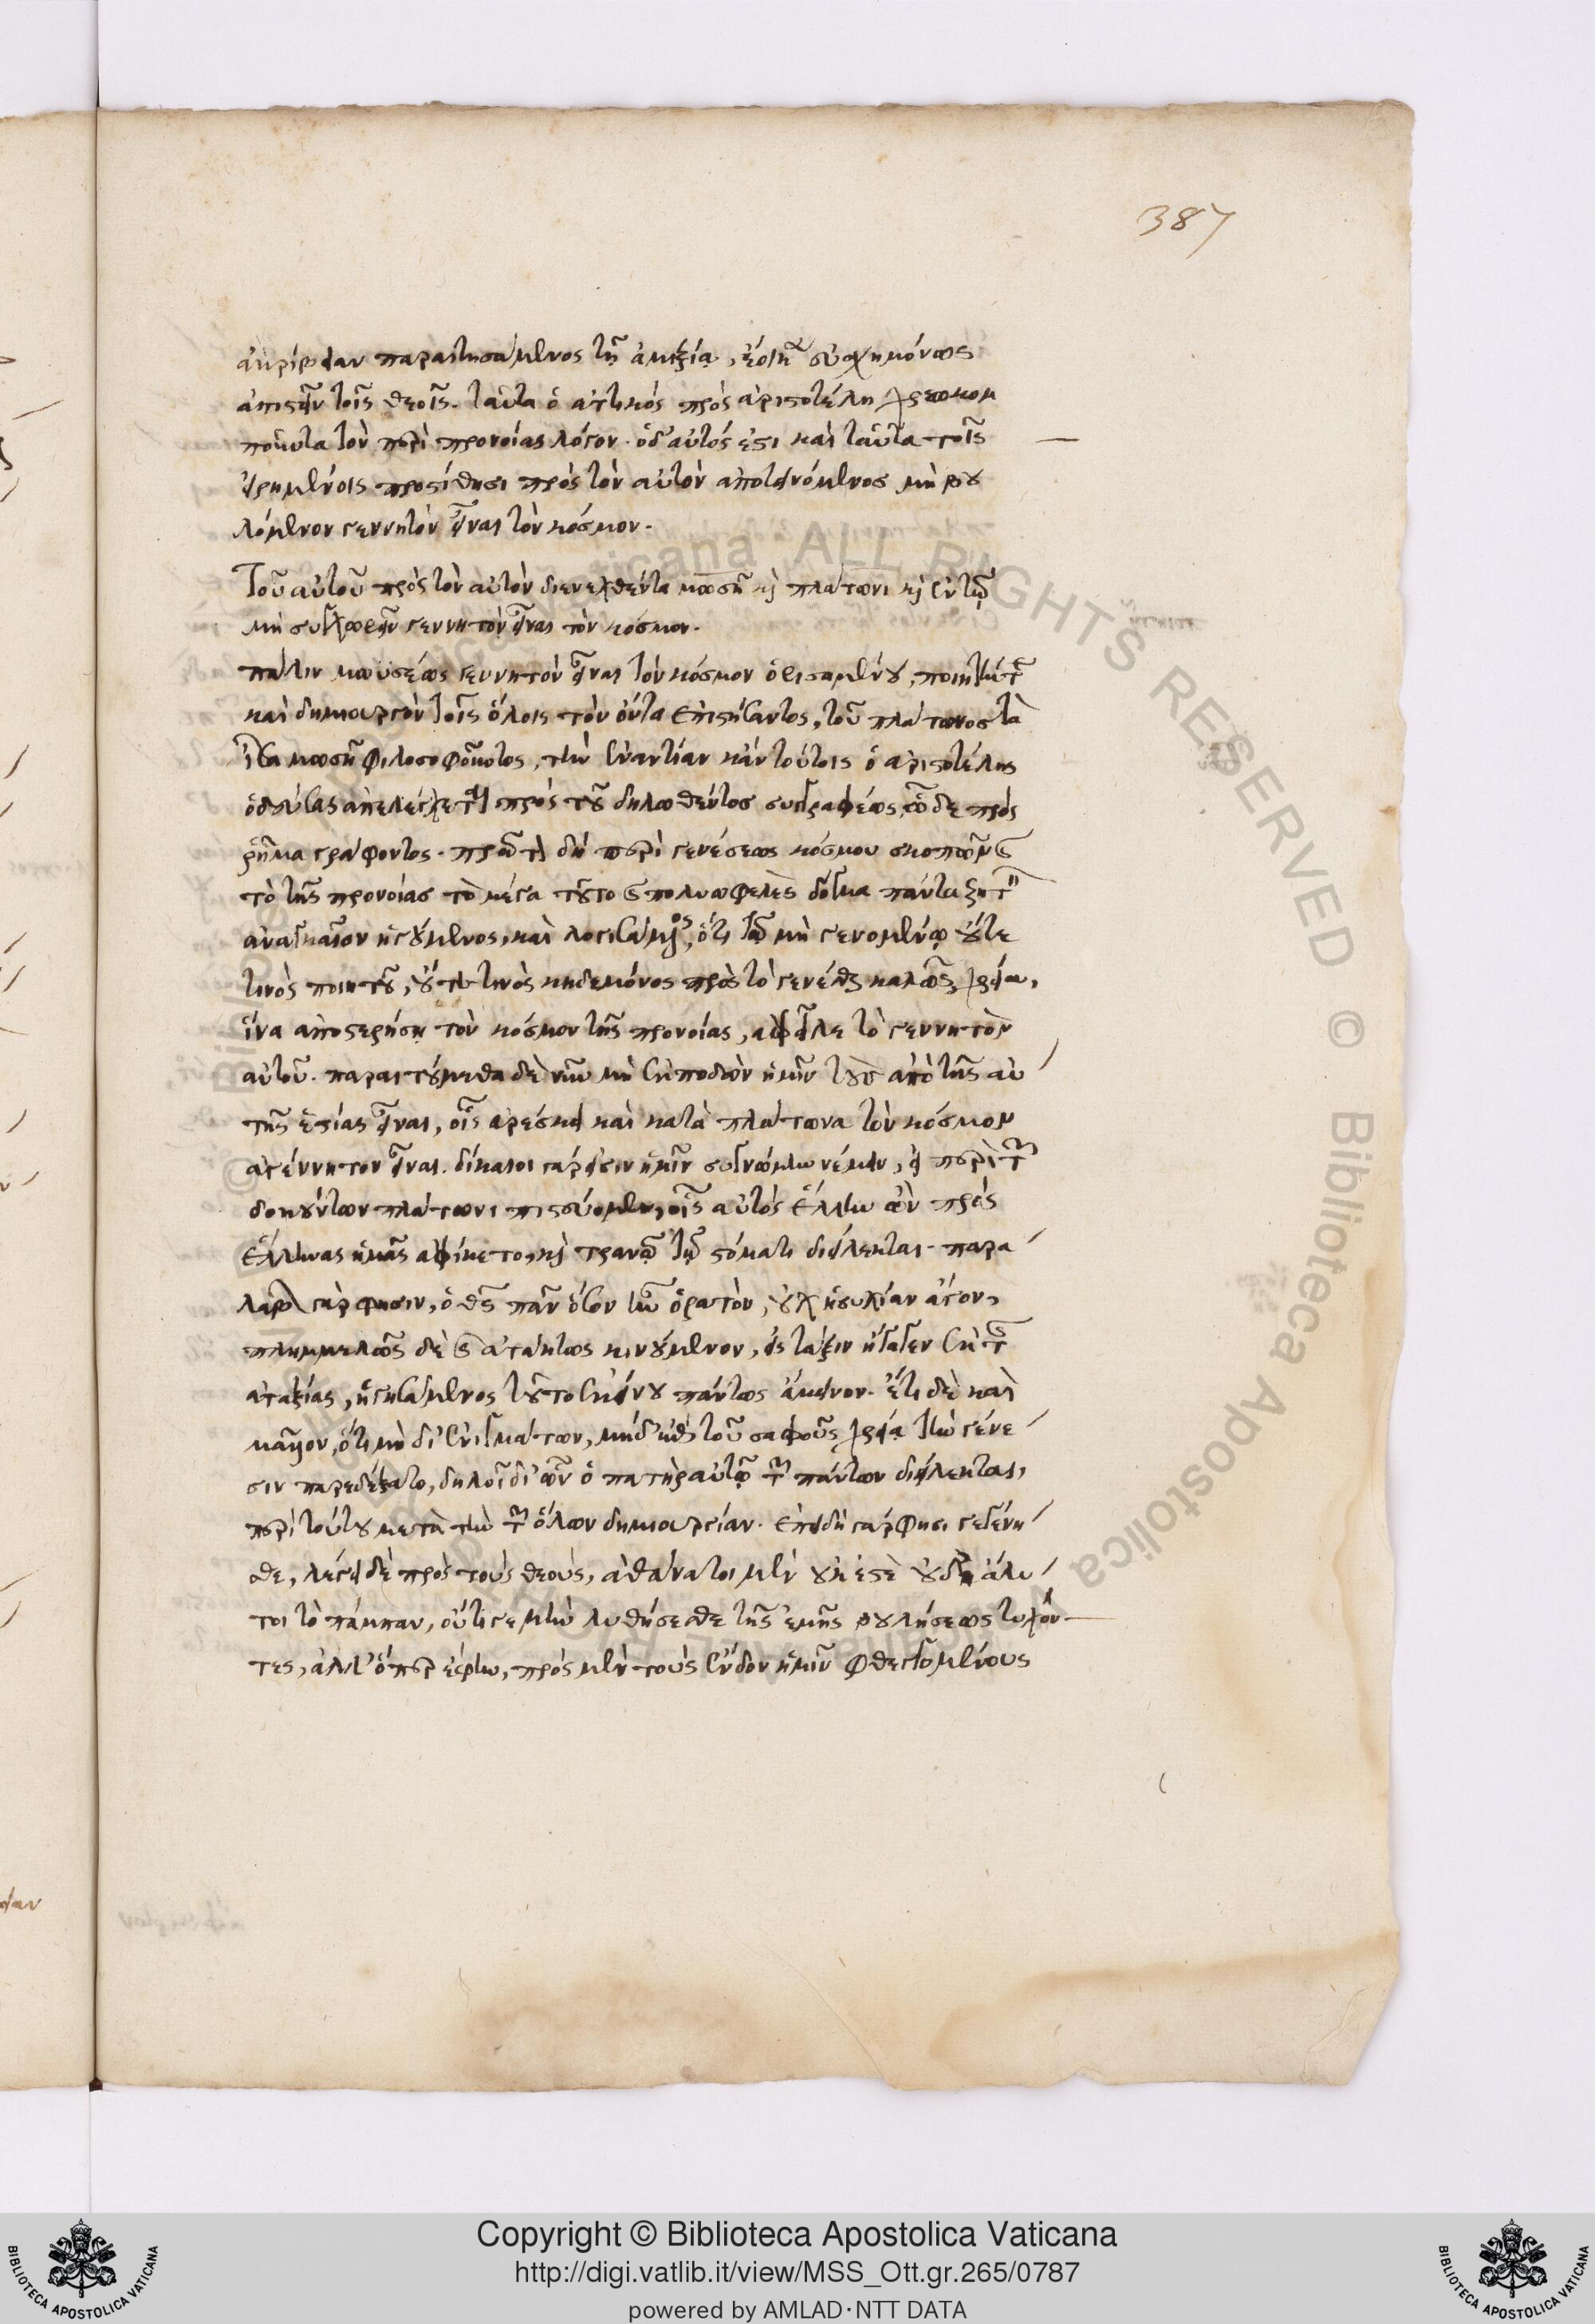 387
ἀκρίβειαν παραιτησάμενος τῇ ἀμιξίᾳ, ἔοικεν εὐσχημόνως
ἀπιστεῖν τοῖς θεοῖς. ταῦτα ὁ ἀττικὸς πρὸς ἀριστοτέλη
ποῦντα τὸν περὶ προνοίας λόγον. ὁ δ' αὐτός ἔτι καὶ ταῦτα τοῖς
εἰρημένοις προστίθησι πρὸς τὸν αὐτὸν ἀποτεινόμενος μὴ βου
λόμενον γεννητὸν εἶναι τὸν κόσμον.
Τοῦ αὐτοῦ πρὸς τὸν αὐτὸν διενεχθέντα μωσῇ καὶ πλάτωνι καὶ ἐν τῷ
μὴ συγχωρεῖν γεννητὸν εἶναι τὸν κόσμον.
πάλιν μωυσέως γεννητὸν εἶναι τὸν κόσμον ὁρισαμένου, ποιητήν τε
καὶ δημιουργὸν τοῖς ὅλοις τὸν ὄντα ἐπιστήσαντος, τοῦ πλάτωνος τὰ
ἴσα μωσῇ φιλοσοφοῦντος, τὴν ἐναντίαν κἀν τούτοις ὁ ἀριστοτέλης
ὁδεύσας ἀπελέγχεται πρὸς τοῦ δηλωθέντος συγγραφέως, ὧδε πρὸς
ῥῆμα γράφοντος. πρῶτον δὴ περὶ γενέσεως κόσμου σκοπῶν καὶ
τὸ τῆς προνοίας τὸ μέγα τοῦτο καὶ πολυωφελὲς δόγμα πάντα ζητεῖν
ἀναγκαῖον ἡγούμενος, καὶ λογισάμενος, ὅτι τῷ μὴ γενομένῳ οὔτε
τινὸς ποιητοῦ, οὔτε τινὸς κηδεμόνος πρὸς τὸ γενέσθαι καλῶς, χρεία,
ἵνα ἀποστερήσῃ τὸν κόσμον τῆς προνοίας, ἀφεῖλε τὸ γεννητὸν
αὐτοῦ. παραιτούμεθα δὲ νῦν μὴ ἐμποδὼν ἡμῖν τοὺς ἀπὸ τῆς αὐ
τῆς ἑστίας εἶναι, οἷς ἀρέσκει καὶ κατὰ πλάτωνα τὸν κόσμον
ἀγέννητον εἶναι. δίκαιοι γάρ εἰσιν ἡμῖν συγγνώμην νέμειν, εἰ περὶ τῶν
δοκούντων πλάτωνι πιστεύομεν, οἷς αὐτὸς ἕλλην ὢν πρὸς
ἕλληνας ἡμᾶς ἀφίκετο, καὶ τρανῷ τῷ στόματι διείλεκται. παρα
λαβὼν γάρ φησιν, ὁ θεὸς πᾶν ὅσον ἦν ὁρατὸν, οὐχ ἡσυχίαν ἄγον,
πλημμελῶς δὲ καὶ ἀτάκτως κινούμενον, εἰς τάξιν ἤγαγεν ἐκ τῆς
ἀταξίας, ἡγησάμενος τοῦτο ἐκείνου πάντως ἄμεινον. ἔτι δὲ καὶ
μᾶλλον, ὅτι μὴ δι' αἰνιγμάτων, μηδ' ἐπὶ τοῦ σαφοῦς χρείᾳ τὴν γένε
σιν παρεδέξατο, δηλοῖ δι' ὧν ὁ πατὴρ αὐτῷ τῶν πάντων διείλεκται,
περὶ τούτου μετὰ τὴν τῶν ὅλων δημιουργίαν. ἐπειδὴ γάρ φησι γεγένη
σθε, λέγει δὲ πρὸς τοὺς θεούς, ἀθάνατοι μὲν οὐκ ἐστὲ οὐδὲ ἄλυ
τοι τὸ πάμπαν, οὔτι γε μὴν λυθήσεσθε τῆς ἐμῆς βουλήσεως τυχόν
τες, ἀλλ' ὅπερ ἔφην, πρὸς μὲν τοὺς ἔνδον ἡμῖν φθεγγομένους
Copyright © Biblioteca Apostolica Vaticana
http://digi.vatlib.it/view/MSS_Ott.gr.265/0787
powered by AMLAD·NTT DATA